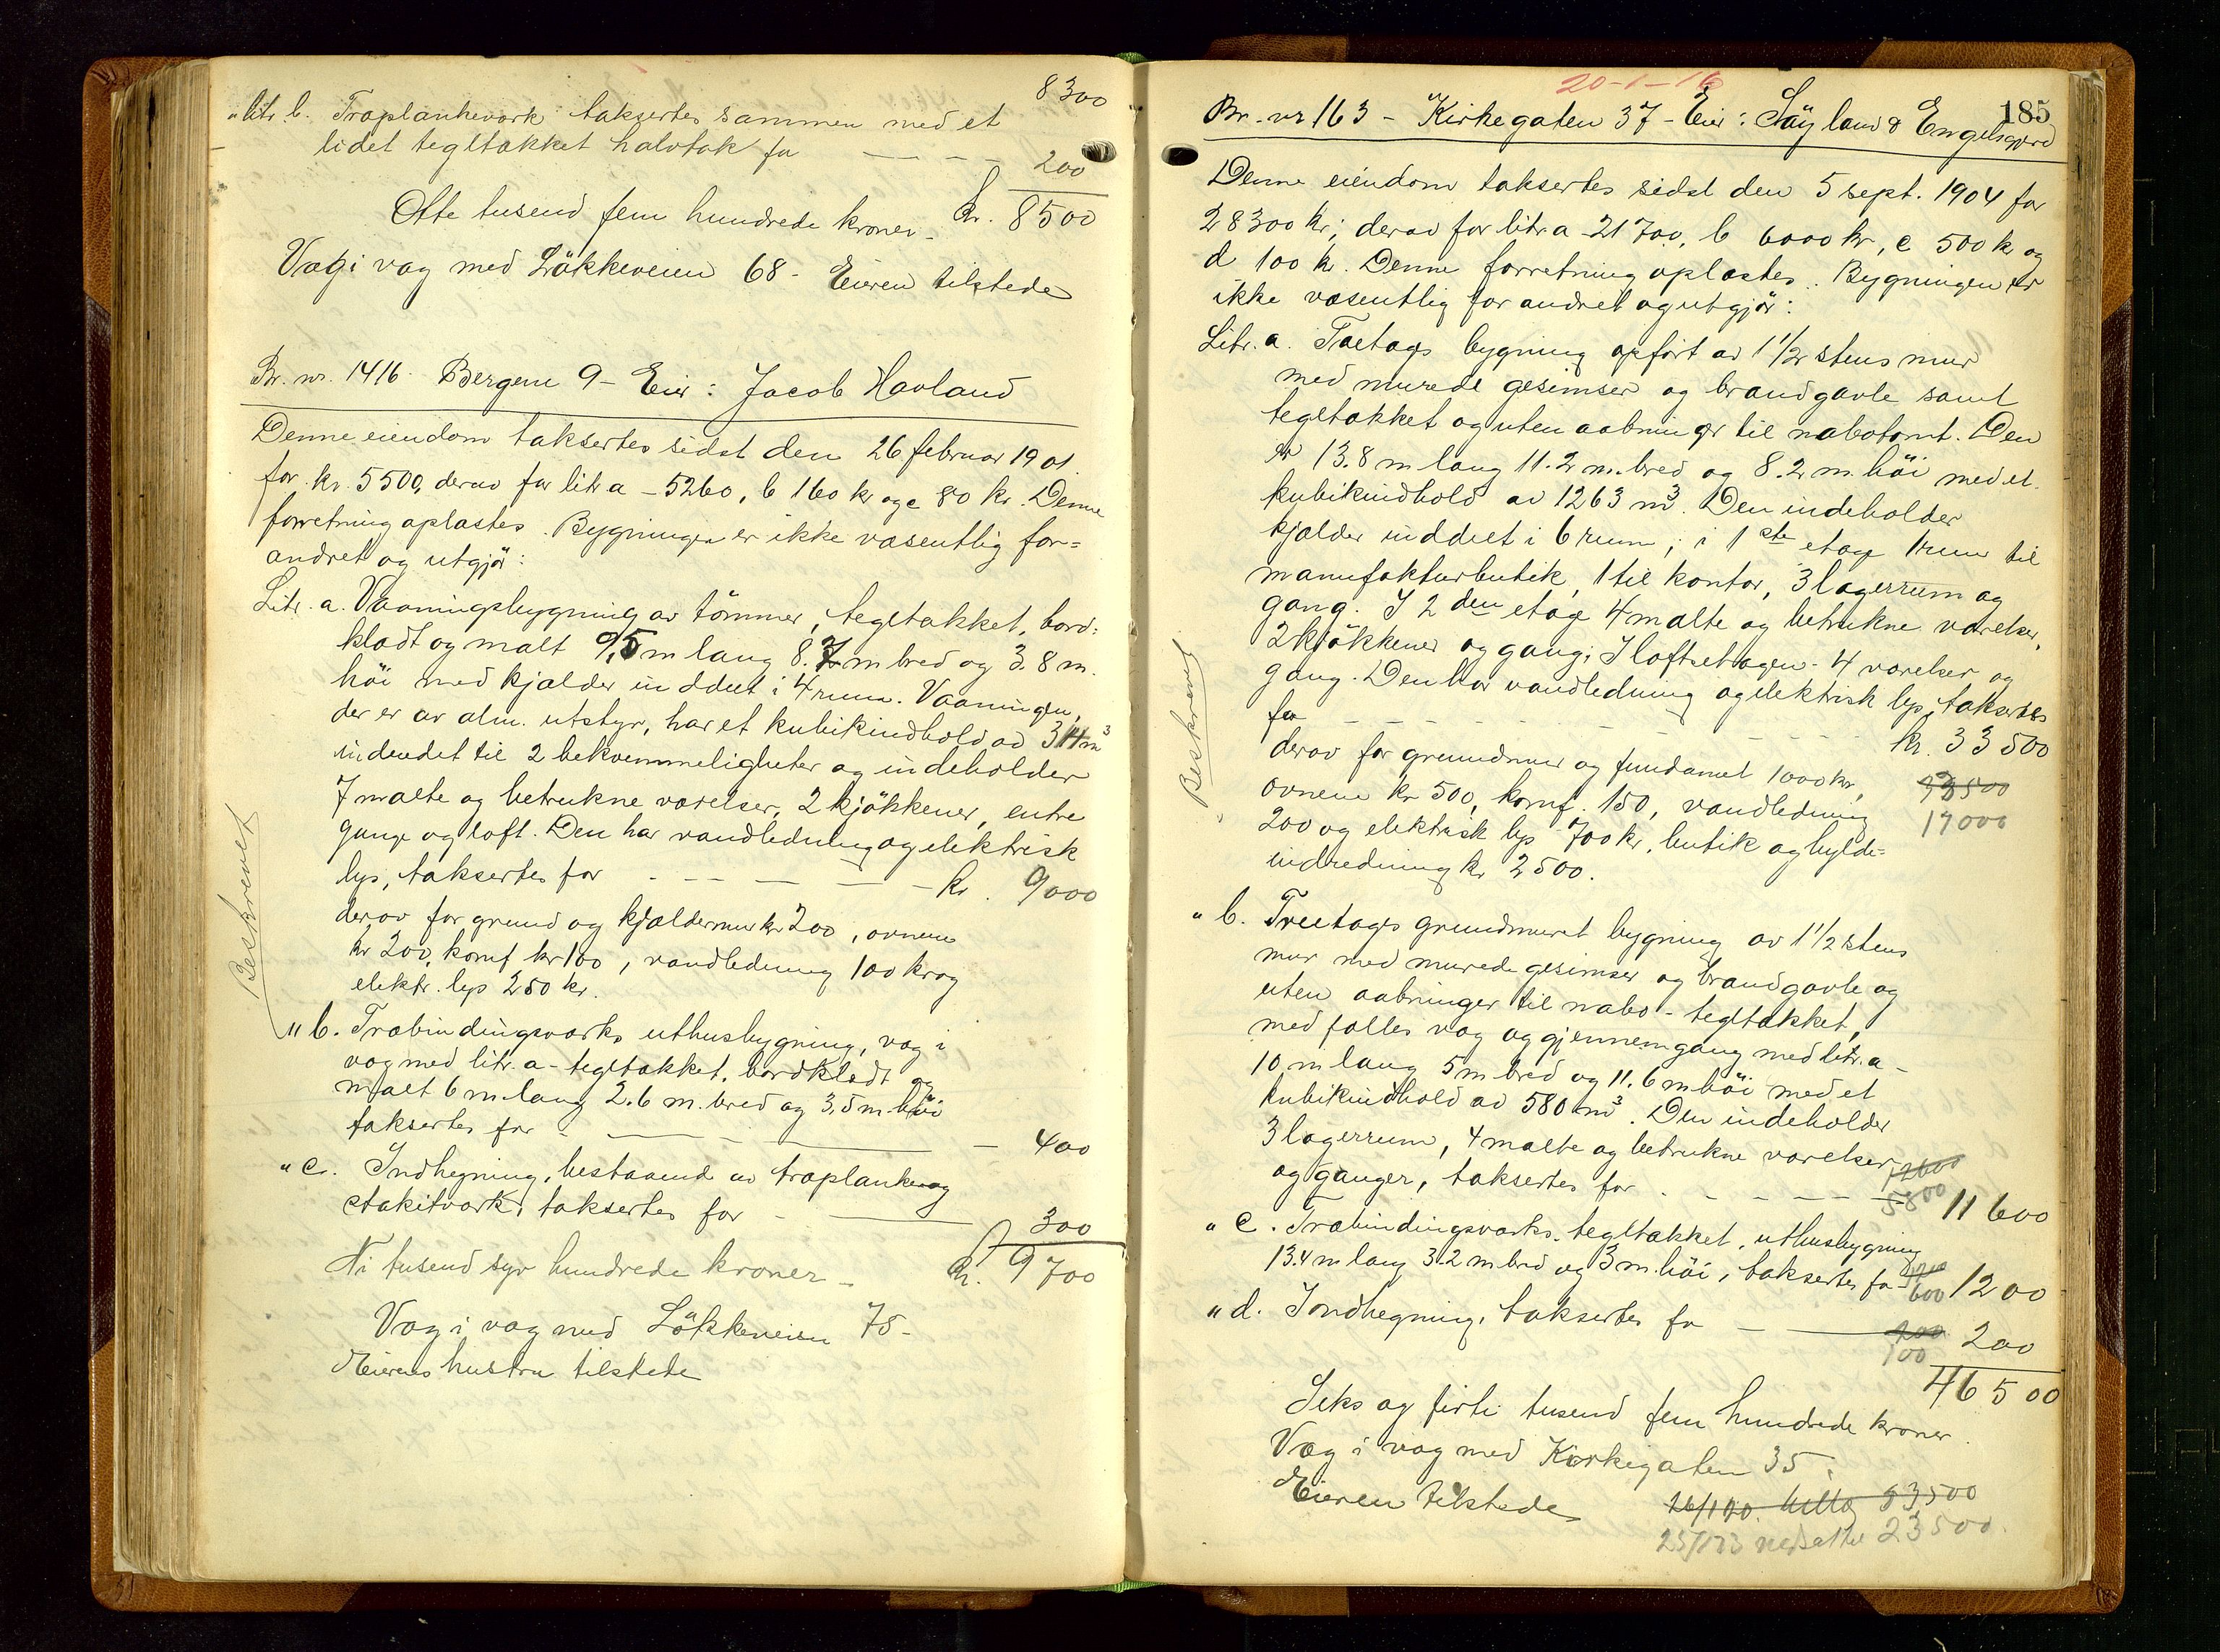 8300
"litr. b. Træplankeværk taksertes sammen med et
lidet tegltækket halvtak for — — — — 200
Otte tusend fem hundrede kroner - Kr. 8500
Væg i væg med Løkkeveien 68 - Eieren tilstede
Br. nr. 1416 Bergene 9 - Eier: Jacob Havland
Denne eiendom taksertes sidst den 26 februar 1901
for kr. 5500, derav for litr a - 5260, b 160 kr og c 80 kr. Denne
forretning oplæstes. Bygningen er ikke væsentlig for=
andret og utgjør:
Litr. a. Vaaningsbygning av tömmer, tegltækket, bord=
klædt og malt 9,5 m lang 8.7 m bred og 3.8 m.
höi med kjælder inddeet i 4 rum. Vaaningen,
der er av alm. utstyr, har et kubikindhold av 314 m³
inderedet til 2 bekvemmeligheter og indeholder
7 malte og betrukne værelser, 2 kjökkener, entre
gange og loft. Den har vandledning og elektrisk
lys, taksertes for - — — — — kr. 9000
derav for grund og kjældermur kr 200, ovnene
kr 200, komf kr 100, vandledning 100 kr og
elektr. lys 250 kr.
Beskrevet
" b. Træbindingsværks uthusbygning, væg i
væg med litr. a - tegltækket, bordklædt og
malt 6 m. lang 2.6 m. bred og 3,5 m. höi
taksertes for - — — — 400
" c. Indhegning, bestaaende av træplanke og
stakitværk, taksertes for - — 300
Ni tusend syv hundrede kroner - Kr. 9700
Væg i væg med Løkkeveien 75 -
Eierens hustru tilstede
20-1-16
185
Br. nr 163 - Kirkegaten 37 - Eier: Säyland & Engelsgjerd
Denne eiendom taksertes sidst den 5 sept. 1904 for
28300 kr; derav for litr a 21700, b 6000 kr, c 500 kr og
d 100 kr. Denne forretning oplæstes. Bygningen er
ikke væsentlig forandret og utgjör:
Litr. a. Toetages bygning opfört av 1 1/2 stens mur
med murede gesimser og brandgavle samt
tegltækket og uten aabninger til nabotomt. Den
er 13.8 m lang 11.2 m. bred og 8.2 m. höi med et
kubikindhold av 1263 m³. Den indeholder
kjælder inddeet i 6 rum; i 1ste etage 1 rum til
manufakturbutik, 1 til kontor, 3 lagerrum og
gang. I 2den etage 4 malte og betrukne værelser,
2 kjökkener og gang; I loftsetagen - 4 værelser og
gang. Den har vandledning og elektrisk lys, taksertes
for - - - - - - - - kr. 33500
derav for grundmur og fundament 1000 kr,
ovnene kr 500, komf. 150, vandledning 17000
200 og elektrisk lys 700 kr, butik og hylde=
indredning kr 2500.
Beskrevet
" b. Treetages grundmuret bygning av 1 1/2 stens
mur med murede gesimser og brandgavle og
uten aabninger til nabo - tegltækket,
med fælles væg og gjennemgang med litr. a -
10 m lang 5 m bred og 11.6 m höi med et
kubikindhold av 580 m³. Den indeholder
3 lagerrum, 4 malte og betrukne værelser
og ganger, taksertes for - - - - 5800 11600
" c. Træbindingsværks, tegltækket, uthusbygning
13.4 m lang 3.2 m bred og 3 m. höi, taksertes for 600 1200
" d. Indhegning, taksertes for — — 200 200
100
46500
Seks og firti tusend fem hundrede kroner
Væg i væg med Kirkegaten 35.
Eieren tilstede
53500
25/1 23 nedsat til 23500.